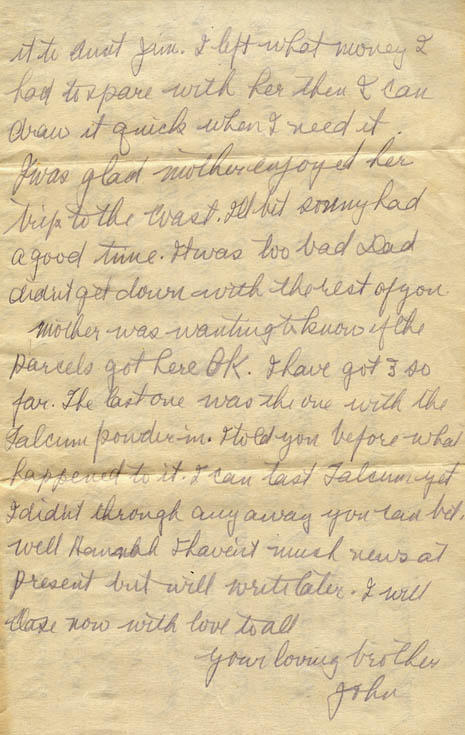 it to Aunt Jim. I left what money I
had to spare with her then I can
draw it quick when I need it.
I was glad mother enjoyed her
trip to the Coast. I'll bet sonny had
a good time. It was too bad Dad
didn't get down with the rest of you
mother was wanting to know if the
parcels got here OK. I have got 3 so
far. The last one was the one with the
Talcum powder in. I told you before what
happened to it. I can tast Talcum yet
I didn't through any away you can bet.
well Hannah I haven't much news at
present but will write later. I will
close now with love to all
your loving brother
John